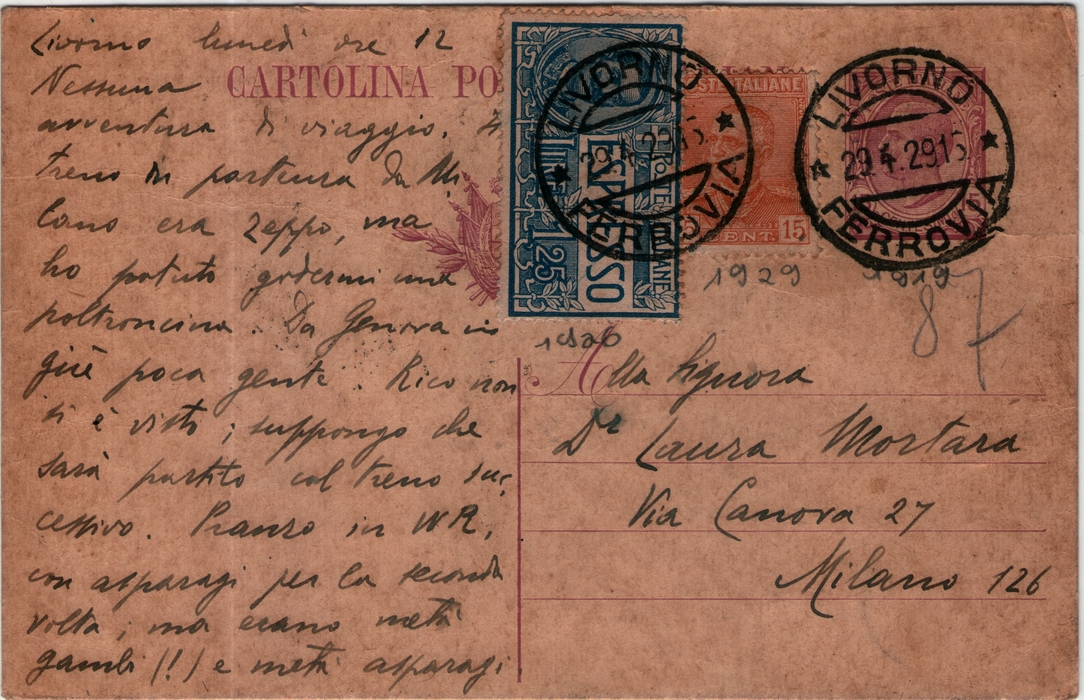 Livorno lunedì ore 12
Nessuna
avventura di viaggio. Il
treno in partenza da Mi
lano era zeppo, ma
ho potuto godermi una
poltroncina. Da Genova in
giù poca gente. Rico non
si è visto; suppongo che
sarà partito col treno suc
cessivo. Pranzo in WR,
con asparagi per la seconda
volta; ma erano metà
gambi (!) e metà asparagi
CARTOLINA PO
POSTE ITALIANE
ESPRESSO
LIRE 1,25
LIVORNO
29.4.29 15
FERROVIA
POSTE ITALIANE
CENT. 15
LIVORNO
29.4.29 15
FERROVIA
1920
1929
1919
87
Alla Signora
Dr Laura Mortara
Via Canova 27
Milano 126